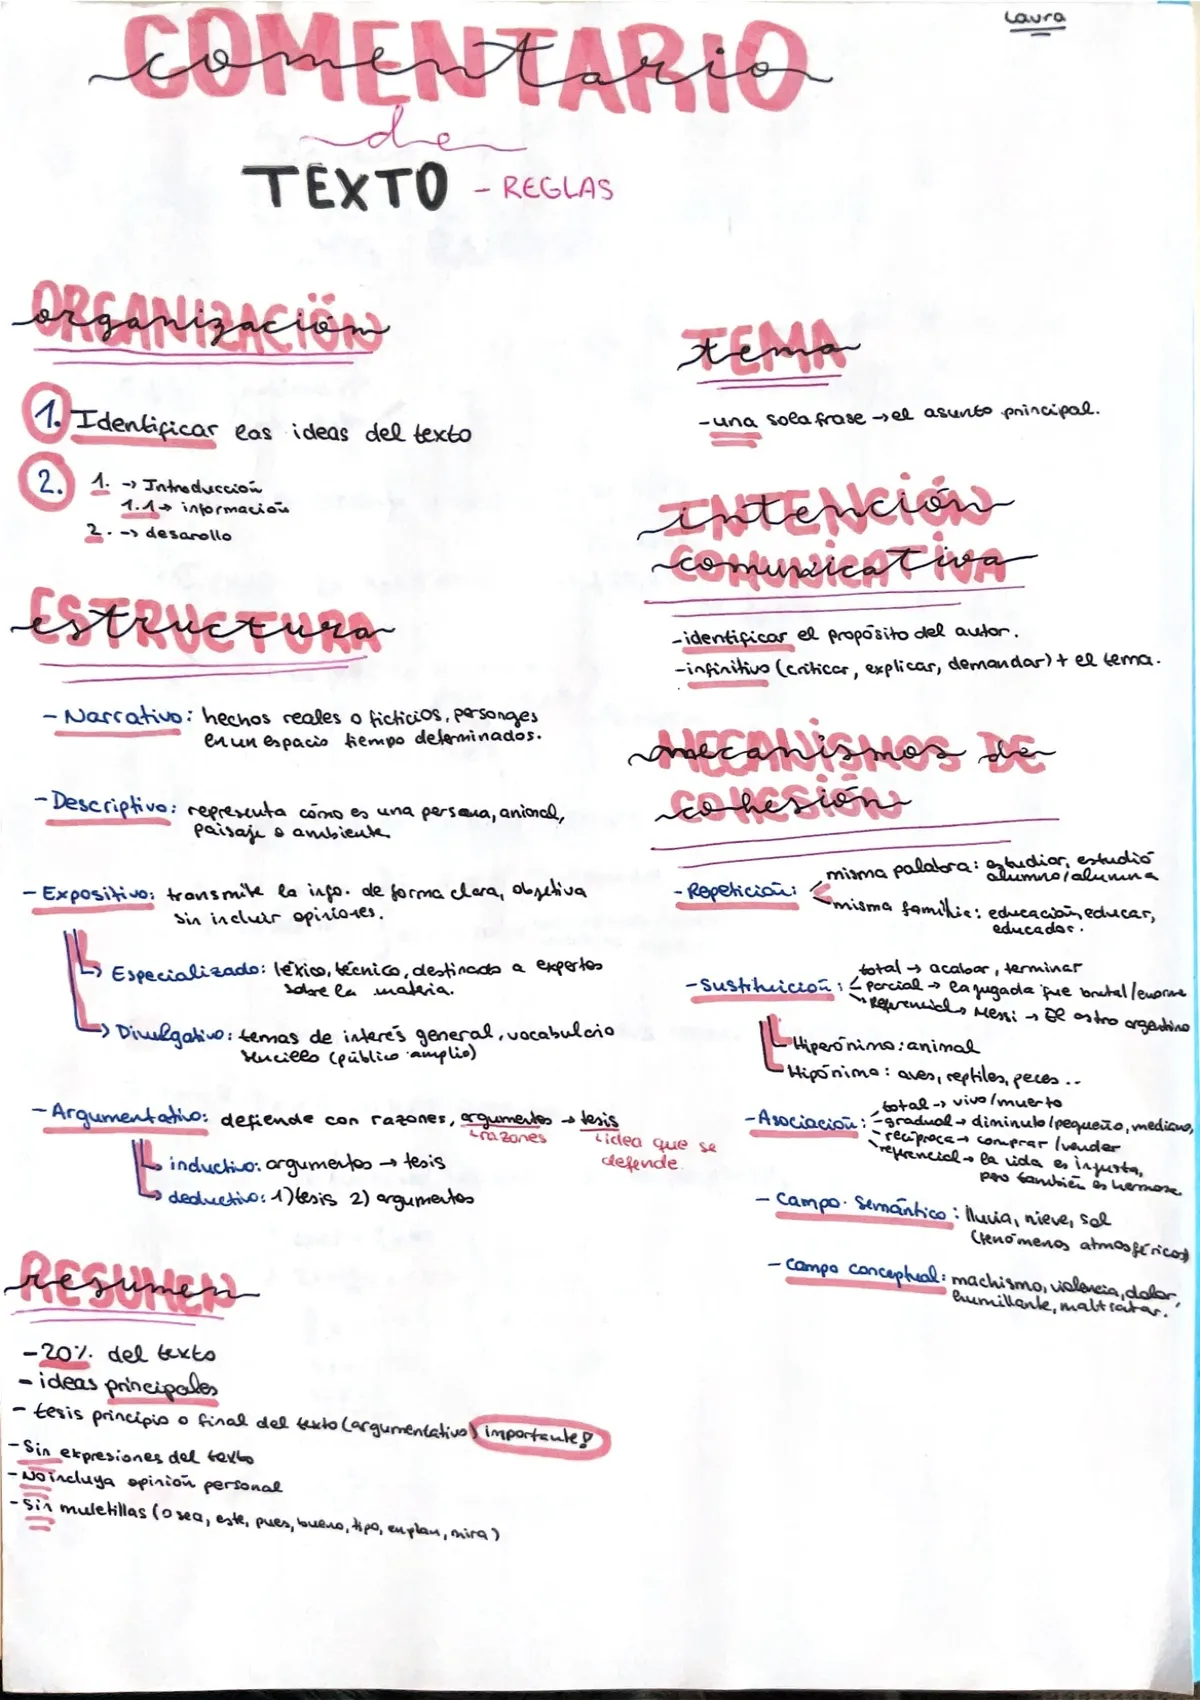 Laura
COMENTARIO
comentario
de
TEXTO - REGLAS
ORGANIZACIÓN
organización
1. Identificar las ideas del texto
2. 1. → Introducción
1.1 → información
2. → desarollo
ESTRUCTURA
estructura
- Narrativo: hechos reales o ficticios, personges
en un espacio tiempo determinados.
- Descriptivo: representa cómo es una persona, animal,
paisaje o ambiente.
- Expositivo: transmite la info. de forma clara, objetiva
sin incluir opiniones.
→ Especializado: léxico, técnico, destinado a expertos
sobre la materia.
→ Divulgativo: temas de interés general, vocabulario
sencillo (público amplio)
- Argumentativo: defiende con razones, argumentos → tesis
razones
idea que se
defende.
→ inductivo: argumentos → tesis
→ deductivo: 1) tesis 2) argumentos
RESUMEN
resumen
- 20% del texto
- ideas principales
- tesis principio o final del texto (argumentativo) importante!
- Sin expresiones del texto
- No incluya opinión personal
- Sin muletillas (o sea, este, pues, bueno, tipo, en plan, mira)
TEMA
tema
- una sola frase → el asunto principal.
INTENCIÓN
intención
COMUNICATIVA
comunicativa
- identificar el propósito del autor.
- infinitivo (criticar, explicar, demandar) + el tema.
MECANISMOS DE
mecanismos de
COHESIÓN
cohesión
- Repetición: misma palabra: estudiar, estudió
alumno/alumna
misma familia: educación, educar,
educador.
- Sustitución: total → acabar, terminar
parcial → la jugada fue brutal/enorme
Referencial → Messi → El astro argentino
Hiperónimo: animal
Hipónimo: aves, reptiles, peces...
- Asociación: total → vivo/muerto
- gradual → diminuto/pequeño, mediano,
recíproca → comprar/vender
referencial → la vida es injusta,
pero también es hermosa
- Campo Semántico: lluvia, nieve, sol
(fenómenos atmosféricos)
- Campo conceptual: machismo, violencia, dolor,
humillante, maltratar.